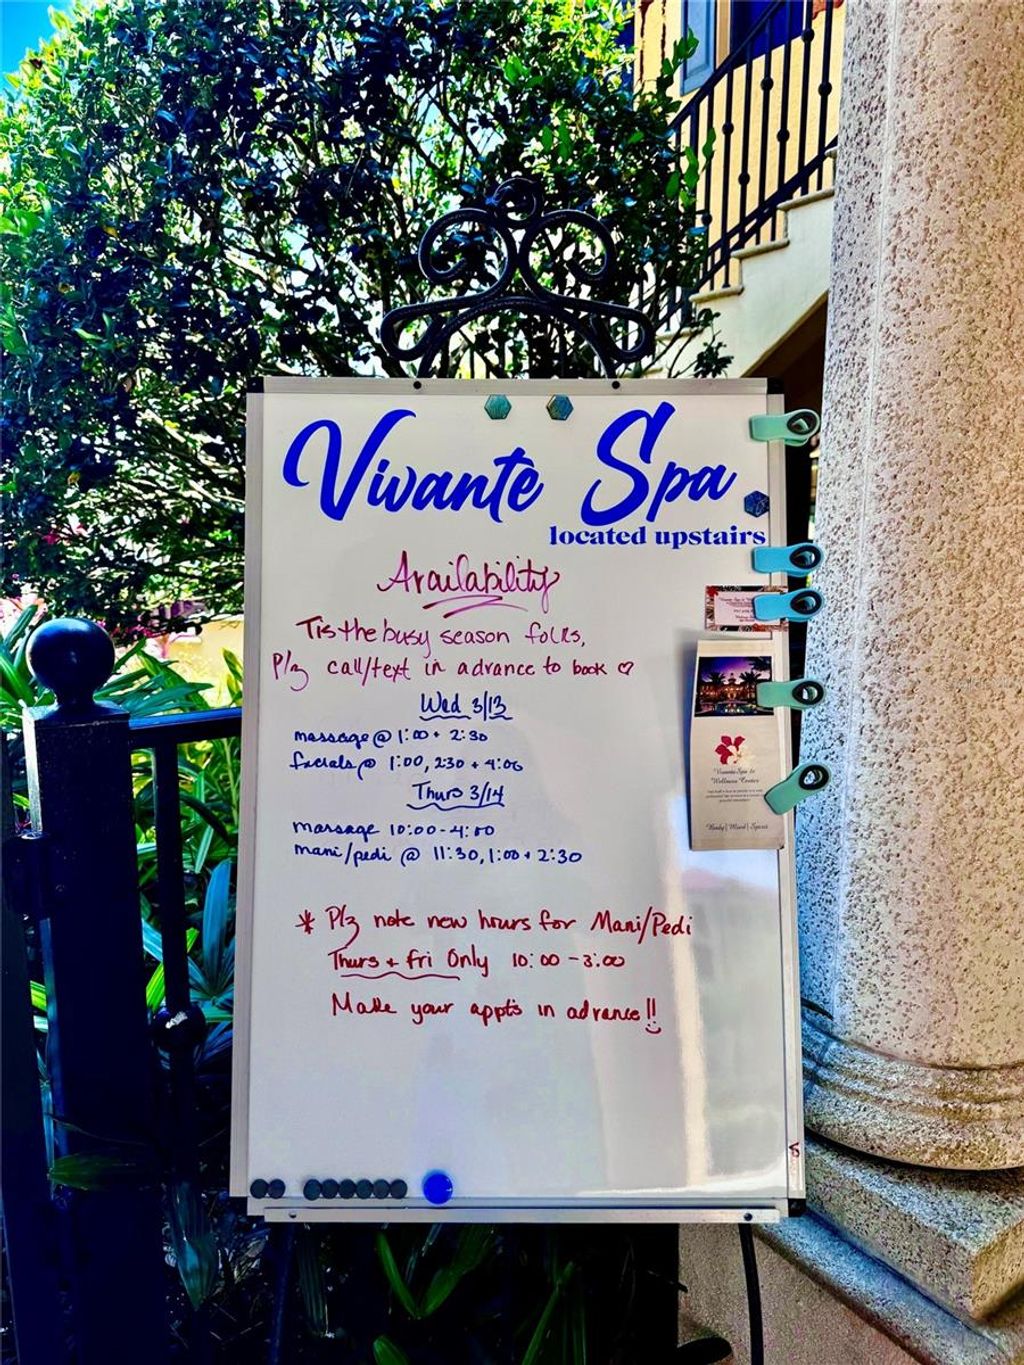 Vivante Spa
located upstairs
Availability
Tis the busy season folks,
Plz call/text in advance to book ♡
Wed 3/13
massage @ 1:00 + 2:30
facials @ 1:00, 2:30 + 4:00
Thurs 3/14
massage 10:00-4:00
mani/pedi @ 11:30, 1:00 + 2:30
* Plz note new hours for Mani/Pedi
Thurs + fri Only 10:00-3:00
Make your appts in advance!!
Vivante Spa &
Wellness Center
Body | Mind | Spirit